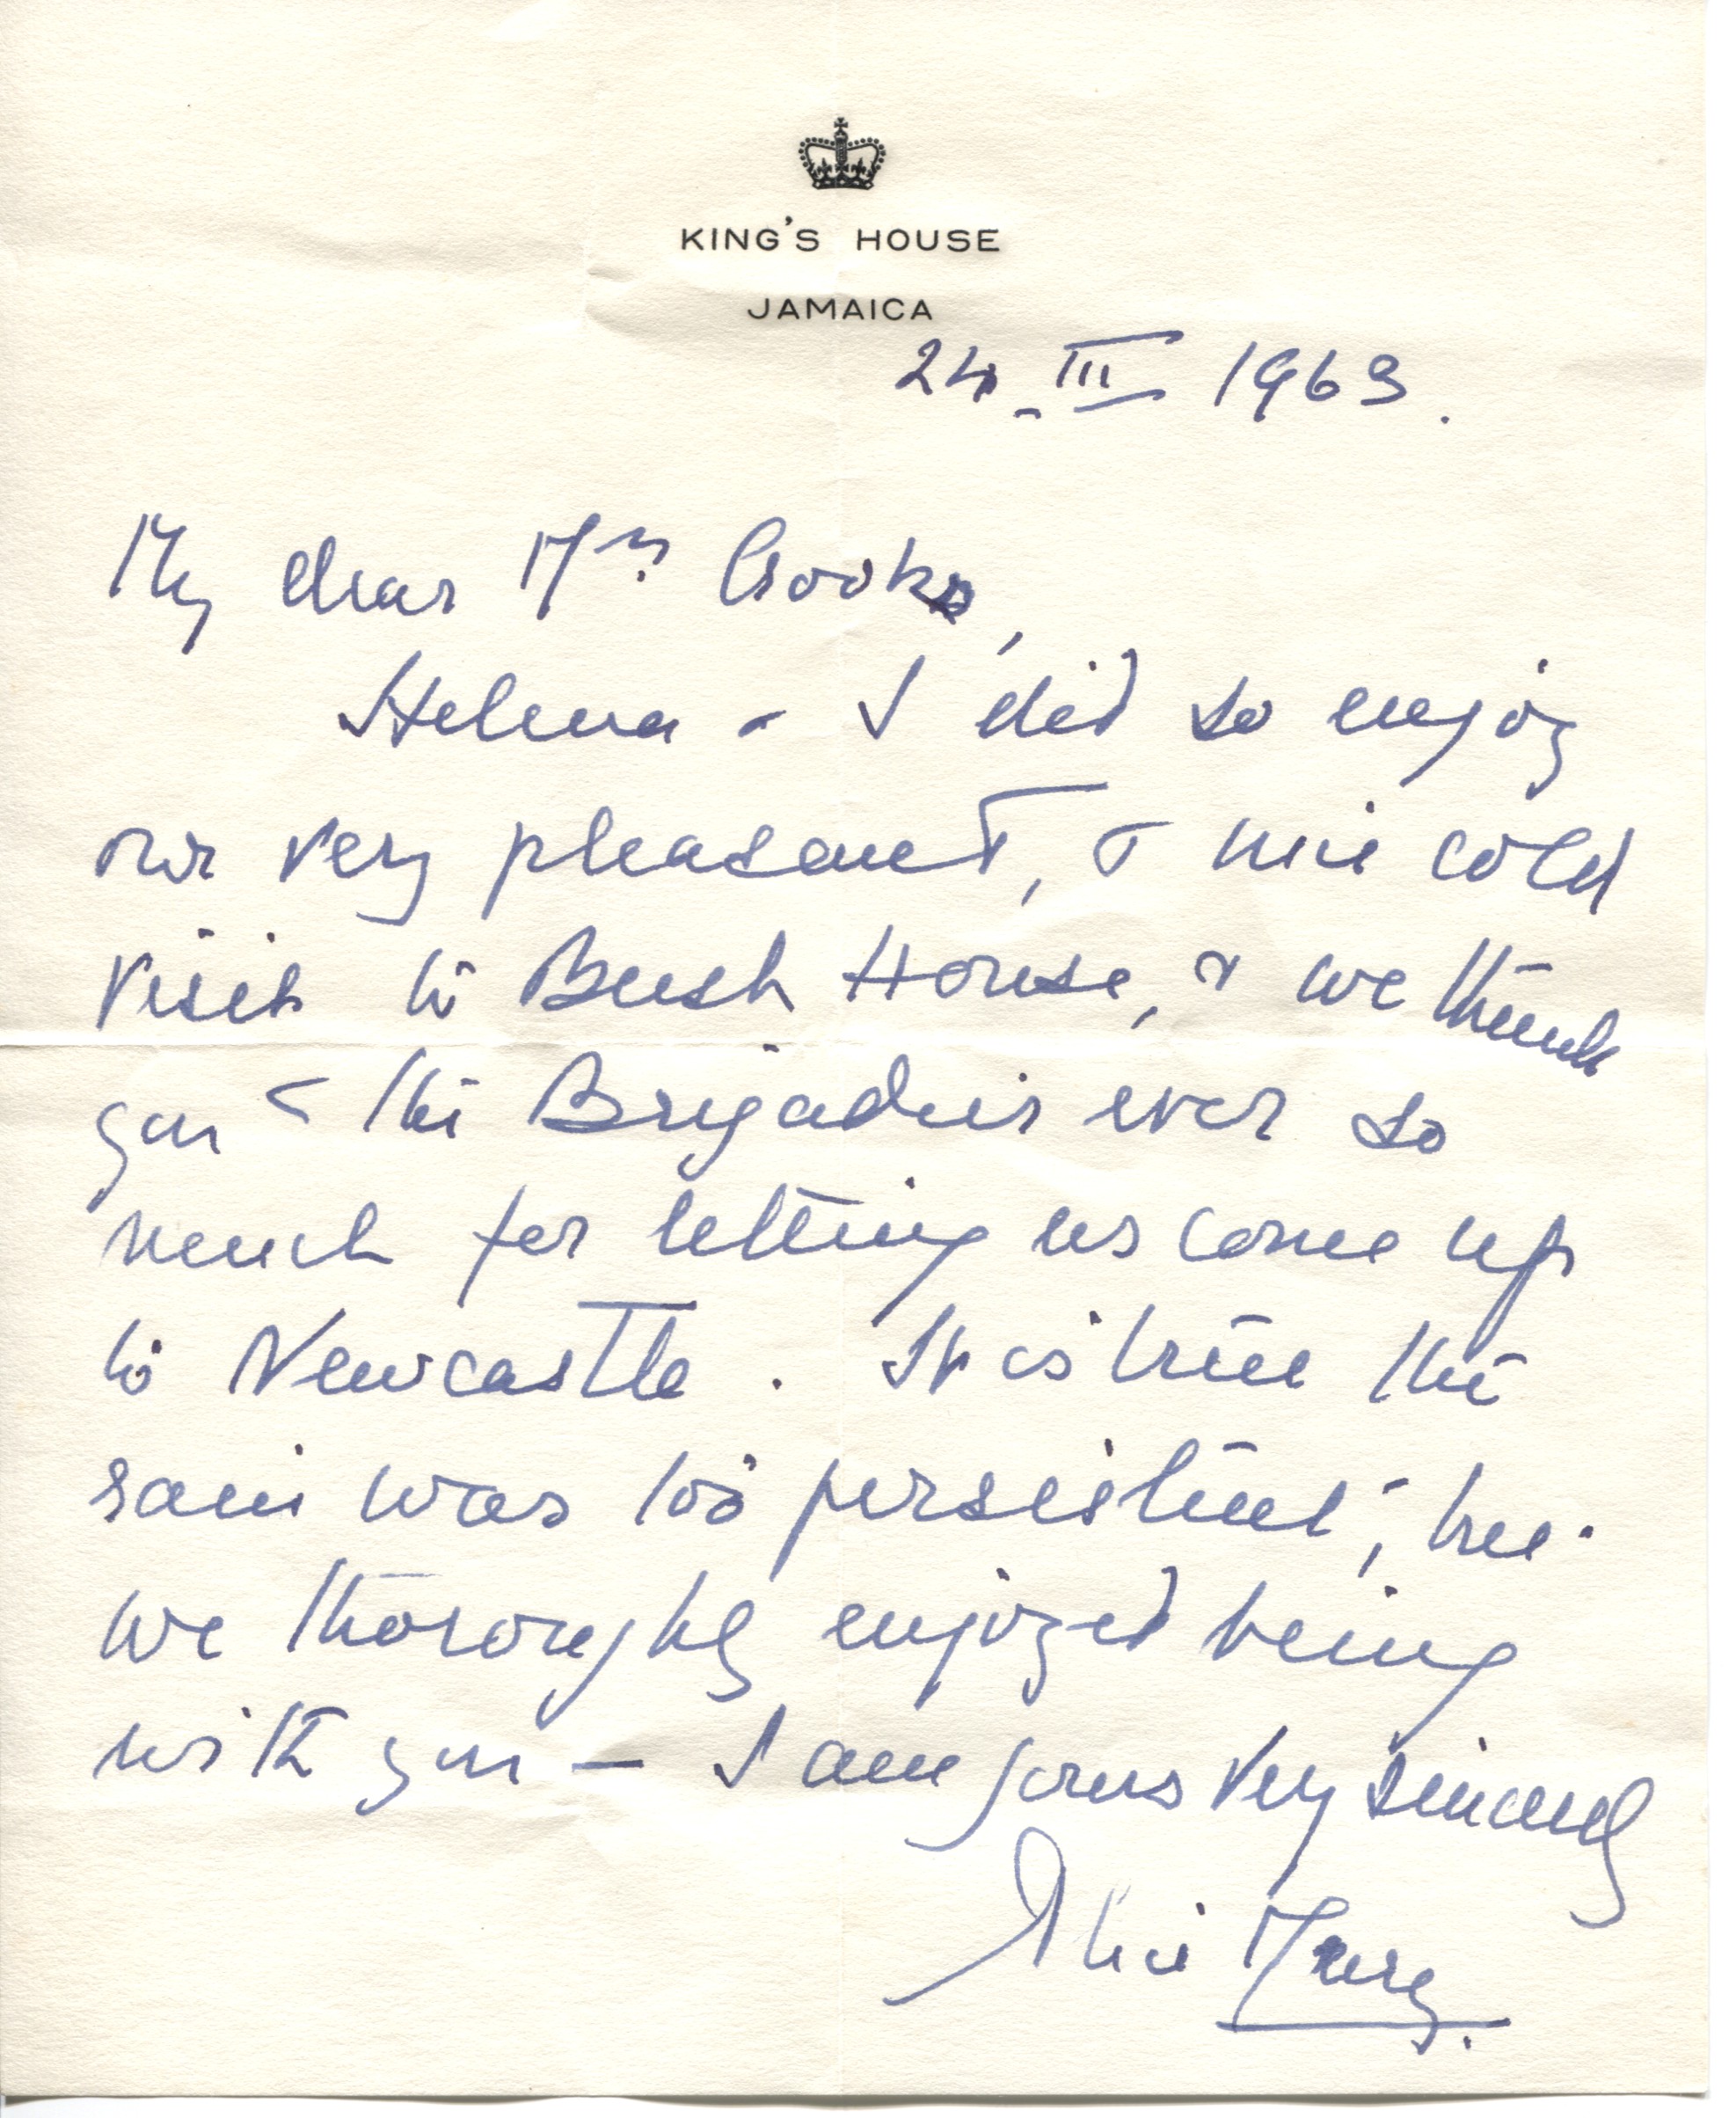 KING'S HOUSE
JAMAICA
24. III 1963.
My dear Mrs. Crooks,
Helena - I did so enjoy
our very pleasant, & nice cold
visit to Bush House, & we thank
you & the Brigadier ever so
much for letting us come up
to Newcastle. It is true the
rain was too persistent, but
we thoroughly enjoyed being
with you — I am yours very sincerely
Alice Mary.